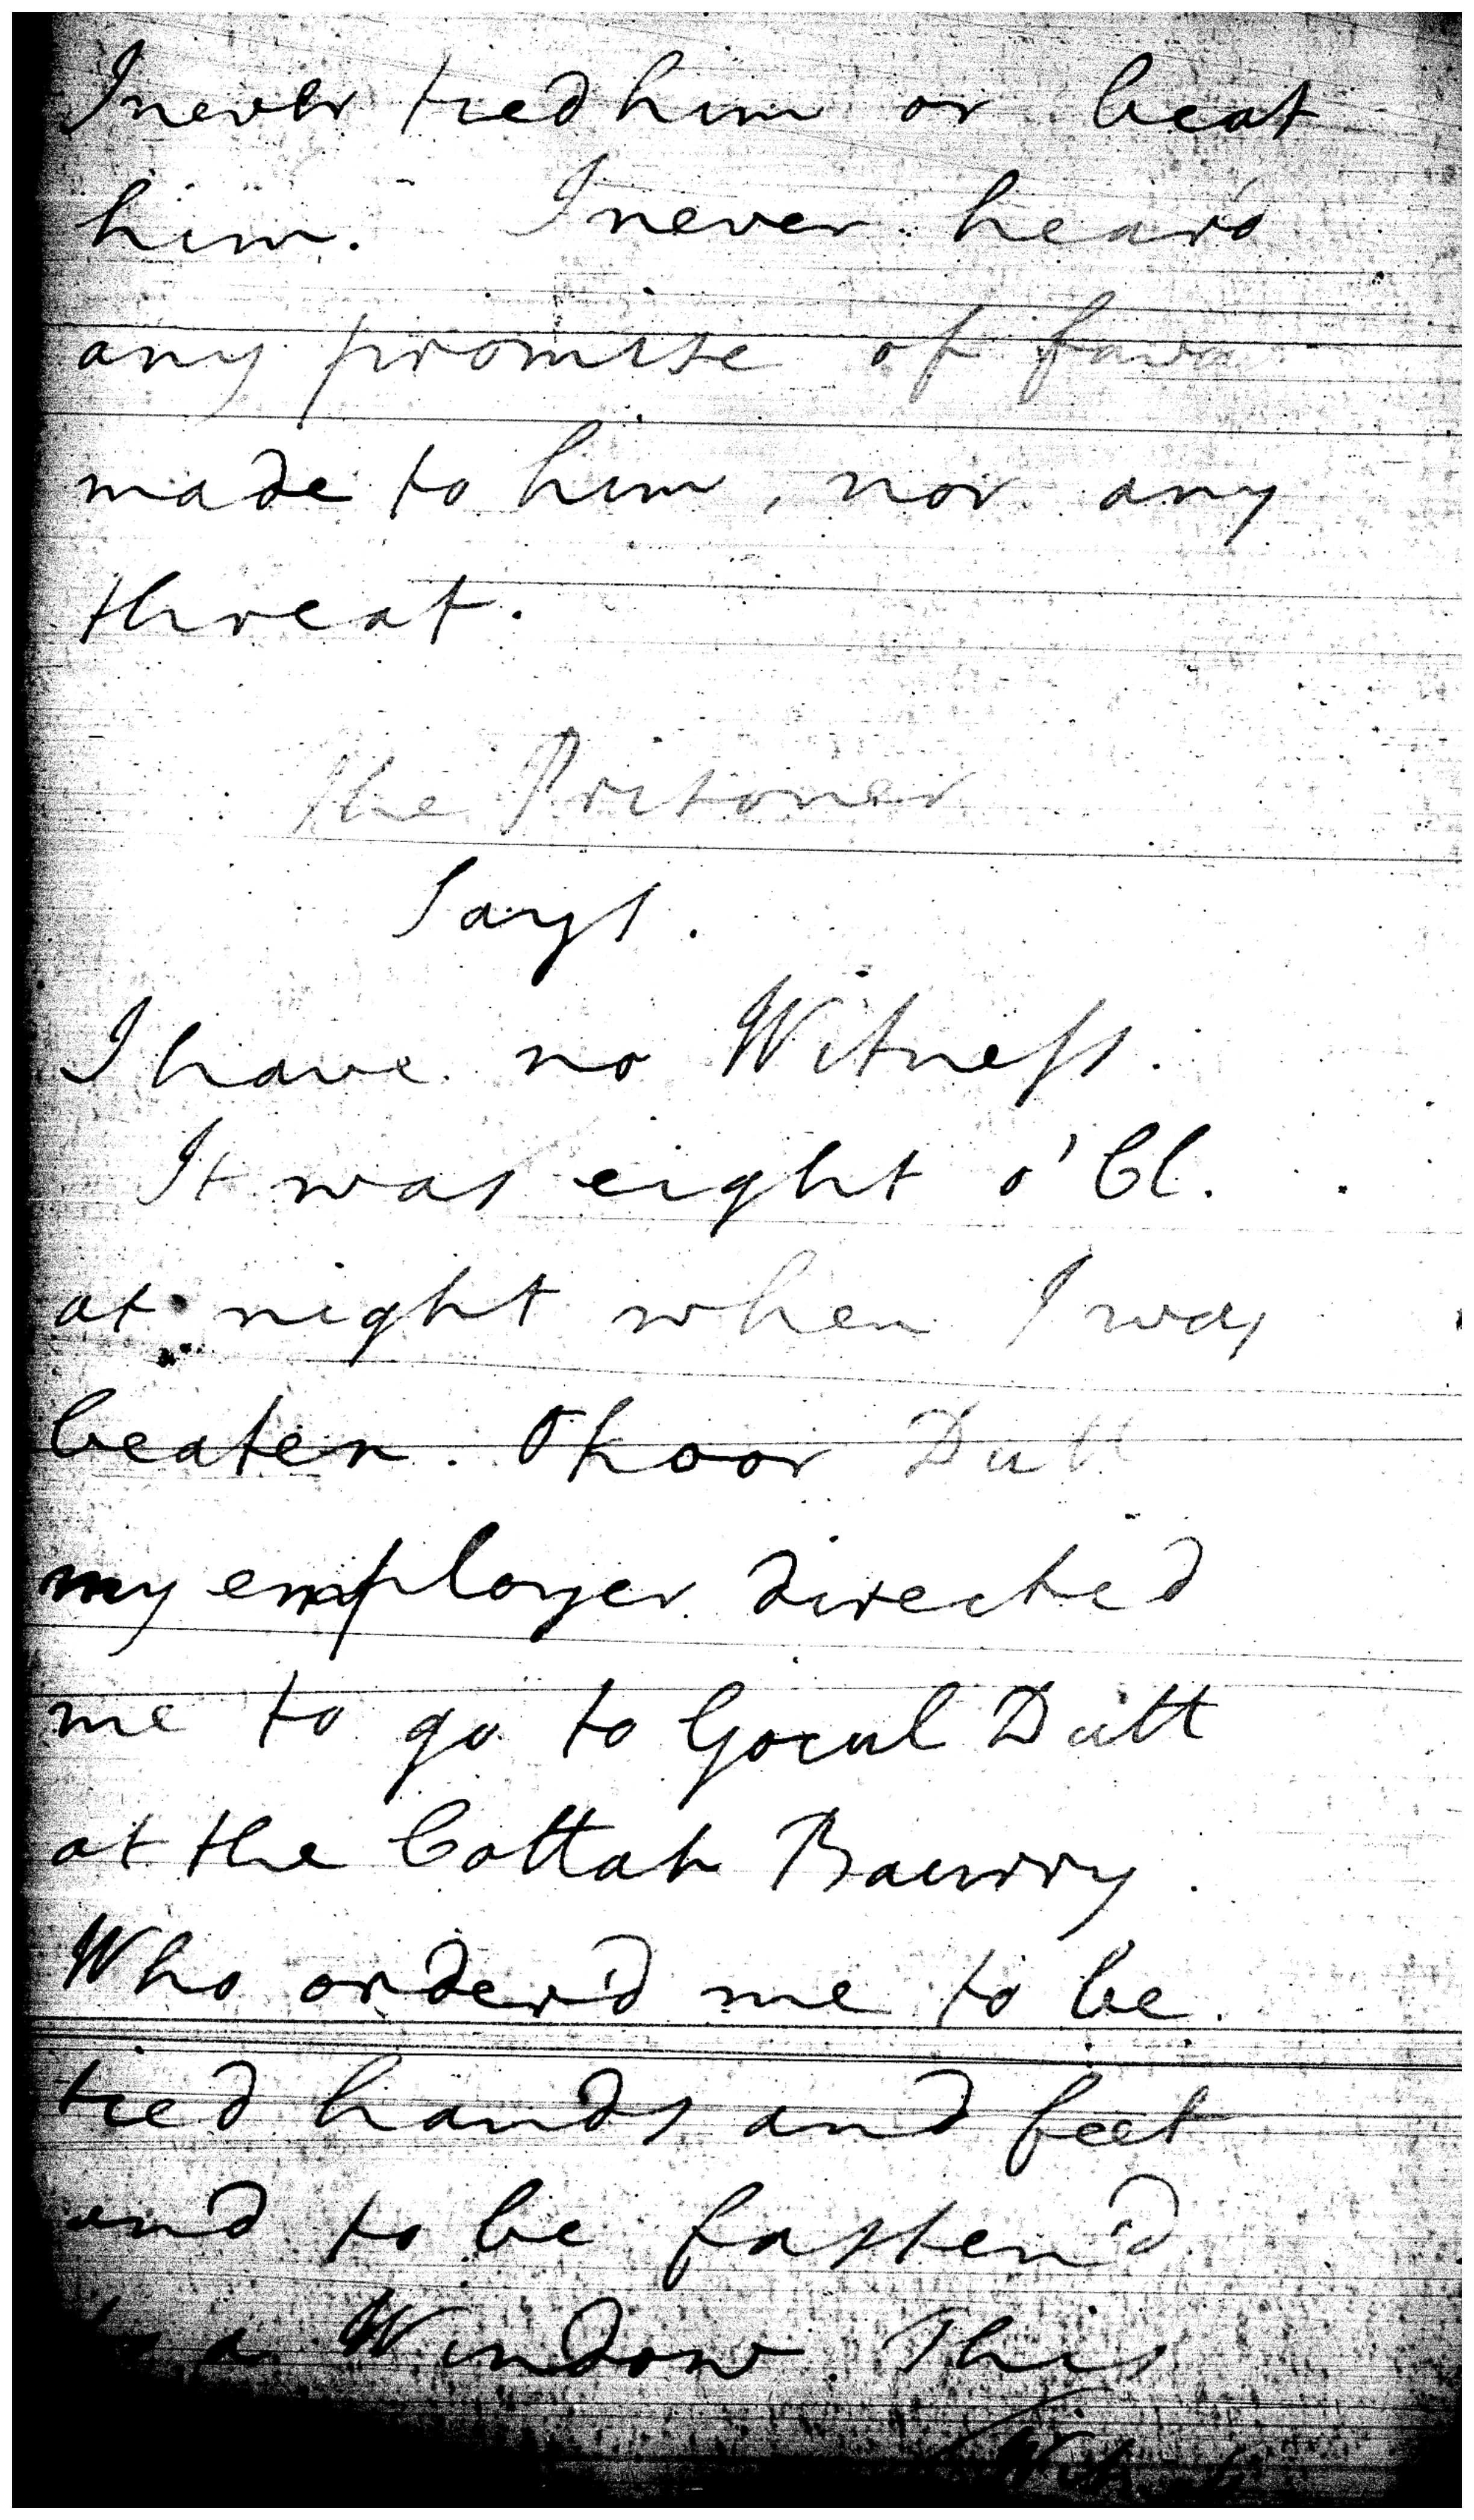 I never tied him or beat
him. I never heard
any promise of favor
made to him, nor any
threat.
The Prisoner
Says.
I have no Witness.
It was eight o'Cl.
at night when I was
beaten. Okoor Dutt
my employer directed
me to go to Gocul Dutt
at the Cottah Baurry.
Who order'd me to be
tied hands and feet
and to be fasten'd
to a Window. This